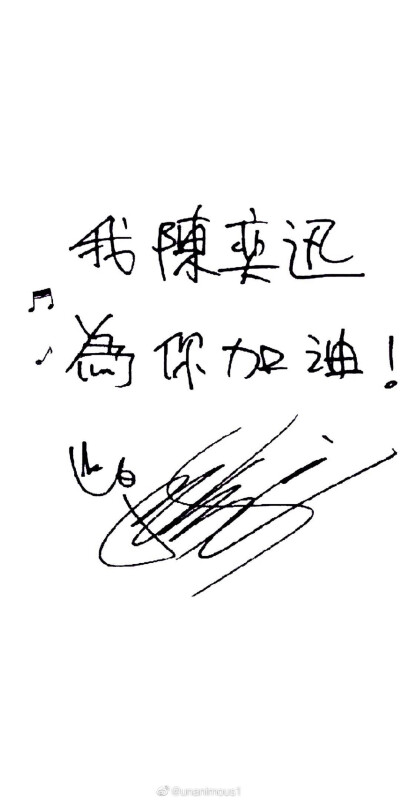 我陳奕迅
為你加油!
@unanimous1